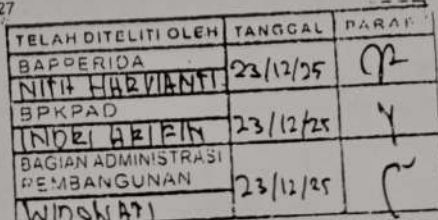 27
TELAH DITELITI OLEH TANGGAL PARAF
BAPPERIDA
NITH HARVIANTI 23/12/25
BPKPAD
INDRI ARIFIN 23/12/25
BAGIAN ADMINISTRASI
PEMBANGUNAN 23/12/25
WIDOWATI